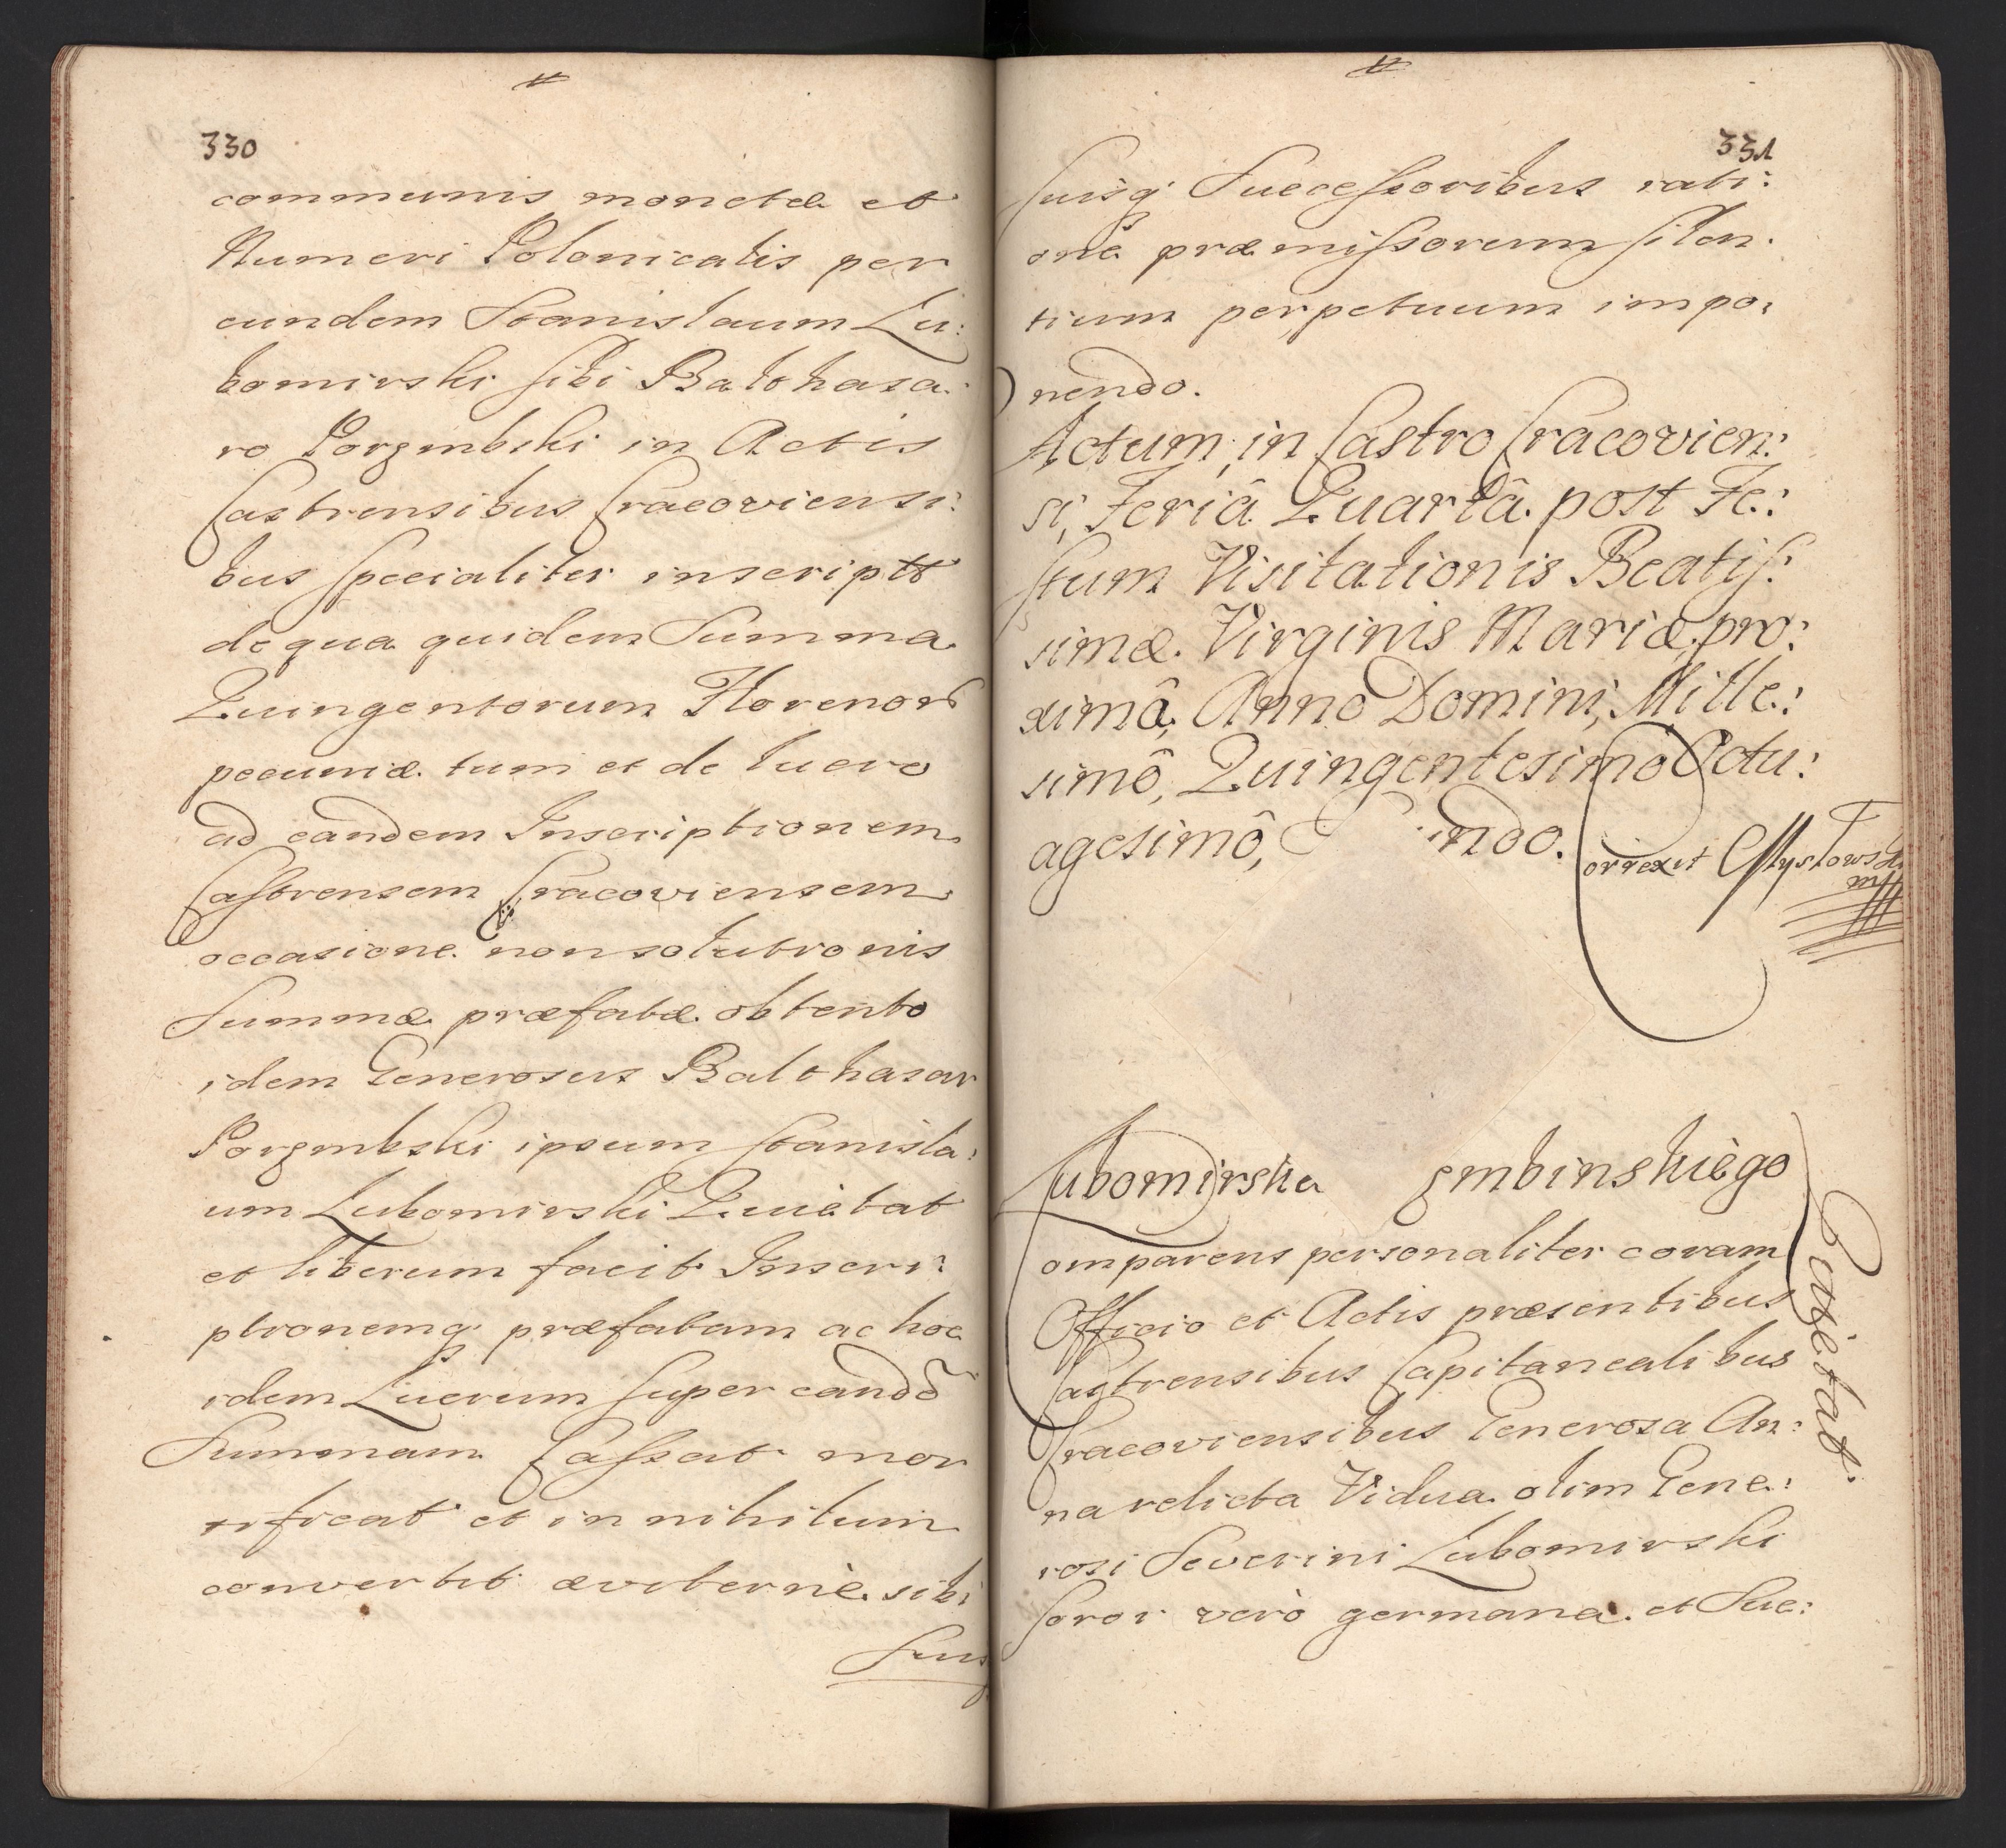 330
communis monetæ et
Numeri Polonicalis per
eundem Stanislaum Lu:
bomirski sibi Balthasa:
ro Porzembski in Actis
Castrensibus Cracoviensi:
bus specialiter inscriptt
de qua quidem Summa
Quingentorum Florenor
pecuniæ tum et de lucro
ad eandem Inscriptionem
Castrensem Cracoviensem
occasione non solutionis
Summæ præfatæ obtento
idem Generosus Balthasar
Porzembski ipsum Stanisla:
um Lubomirski Quietat
et liberum facit Inscri:
ptionemq præfatam ac hoc
idem Lucrum super eandē
Summam Cassat mor
tificat et in nihilum
convertit æviternè sibi
Suis
331
suisq Successoribus rati:
one præmissorum silen:
tium perpetuum impo:
nendo.
Actum in Castro Cracovien:
si, Feriâ Quartâ post Fe:
stum Visitationis Beatis:
simæ Virginis Mariæ pro:
ximâ, Anno Domini, Mille:
simô, Quingentesimô Octu:
agesimô, ndo.
Correxit
Lubomirska embinskiègo
Comparens personaliter coram
Officio et Actis præsentibus
Castrensibus Capitanealibus
Cracoviensibus Generosa An:
na relicta Vidua olim Gene:
rosi Severini Lubomirski
soror verò germana et Suc:
Quietat.